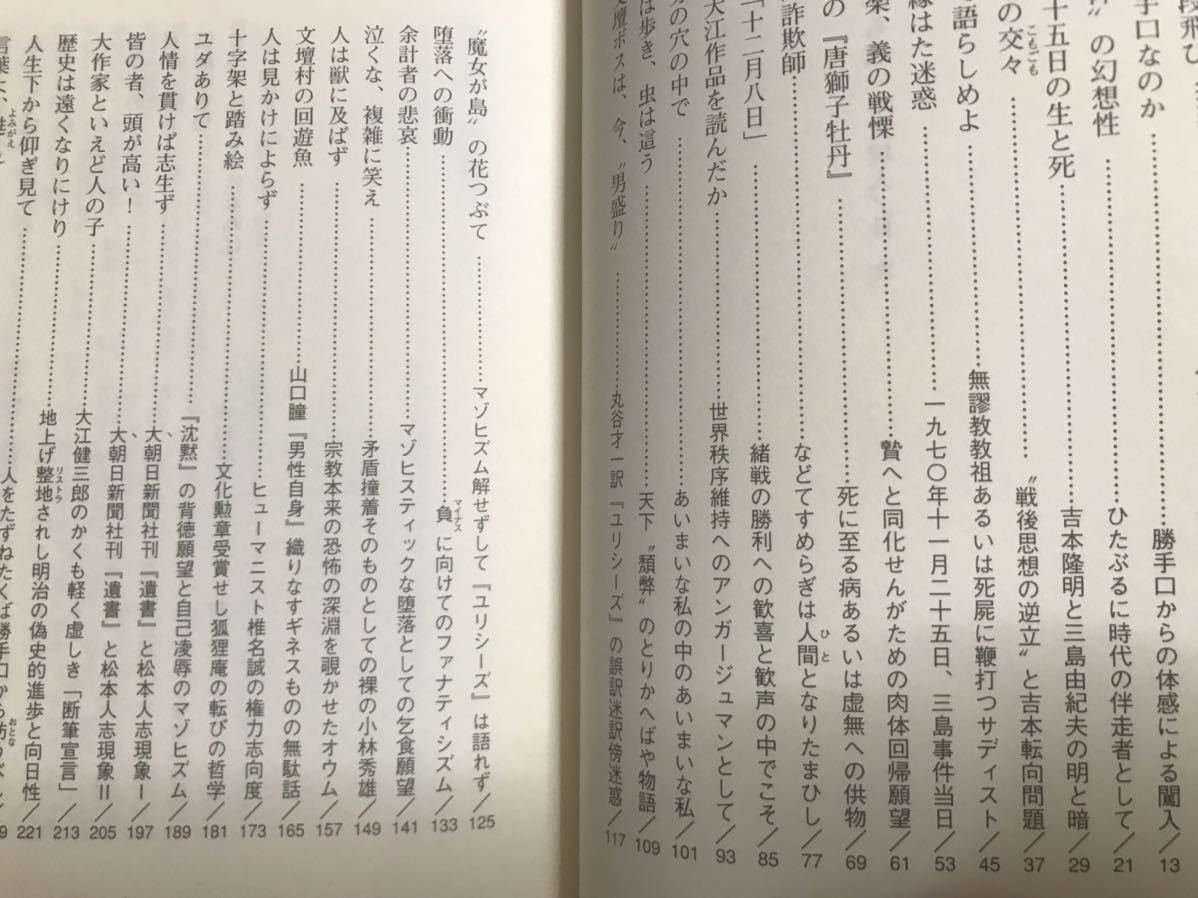 段飛び
手口なのか……勝手口からの体感による闖入／13
〟の幻想性……ひたぶるに時代の伴走者として／21
十五日の生と死……吉本隆明と三島由紀夫の明と暗／29
の交々……〝戦後思想の逆立〟と吉本転向問題／37
こもごも
て語らしめよ……無謬教教祖あるいは死屍に鞭打つサディスト／45
縁はた迷惑……一九七〇年十一月二十五日、三島事件当日／53
架、義の戦慄……贄へと同化せんがための肉体回帰願望／61
の『唐獅子牡丹』……死に至る病あるいは虚無への供物／69
詐欺師……などてすめらぎは人間となりたまひし／77
ひと
「十二月八日」……緒戦の勝利への歓喜と歓声の中でこそ／85
大江作品を読んだか……世界秩序維持へのアンガージュマンとして／93
の穴の中で……あいまいな私の中のあいまいな私／101
は歩き、虫は這う……天下〝頽弊〟のとりかへばや物語／109
文壇ボスは、今、〝男盛り〟……丸谷才一訳『ユリシーズ』の誤訳迷訳傍迷惑／117
〝魔女が島〟の花つぶて……マゾヒズム解せずして『ユリシーズ』は語れず／125
堕落への衝動……負に向けてのファナティシズム／133
マイナス
余計者の悲哀……マゾヒスティックな堕落としての乞食願望／141
泣くな、複雑に笑え……矛盾撞着そのものとしての裸の小林秀雄／149
人は獣に及ばず……宗教本来の恐怖の深淵を覗かせたオウム／157
文壇村の回遊魚……山口瞳『男性自身』織りなすギネスものの無駄話／165
人は見かけによらず……ヒューマニスト椎名誠の権力志向度／173
十字架と踏み絵……文化勲章受賞せし狐狸庵の転びの哲学／181
ユダありて……『沈黙』の背徳願望と自己凌辱のマゾヒズム／189
人情を貫けば志生ず……大朝日新聞社刊『遺書』と松本人志現象Ⅰ／197
皆の者、頭が高い！……大朝日新聞社刊『遺書』と松本人志現象Ⅱ／205
大作家といえど人の子……大江健三郎のかくも軽く虚しき「断筆宣言」／213
歴史は遠くなりにけり……地上げ整地されし明治の偽史的進歩と向日性／221
リストラ
人生下から仰ぎ見て……人をたずねたくば勝手口から訪
おとな
言葉よ、甦
よみがえ